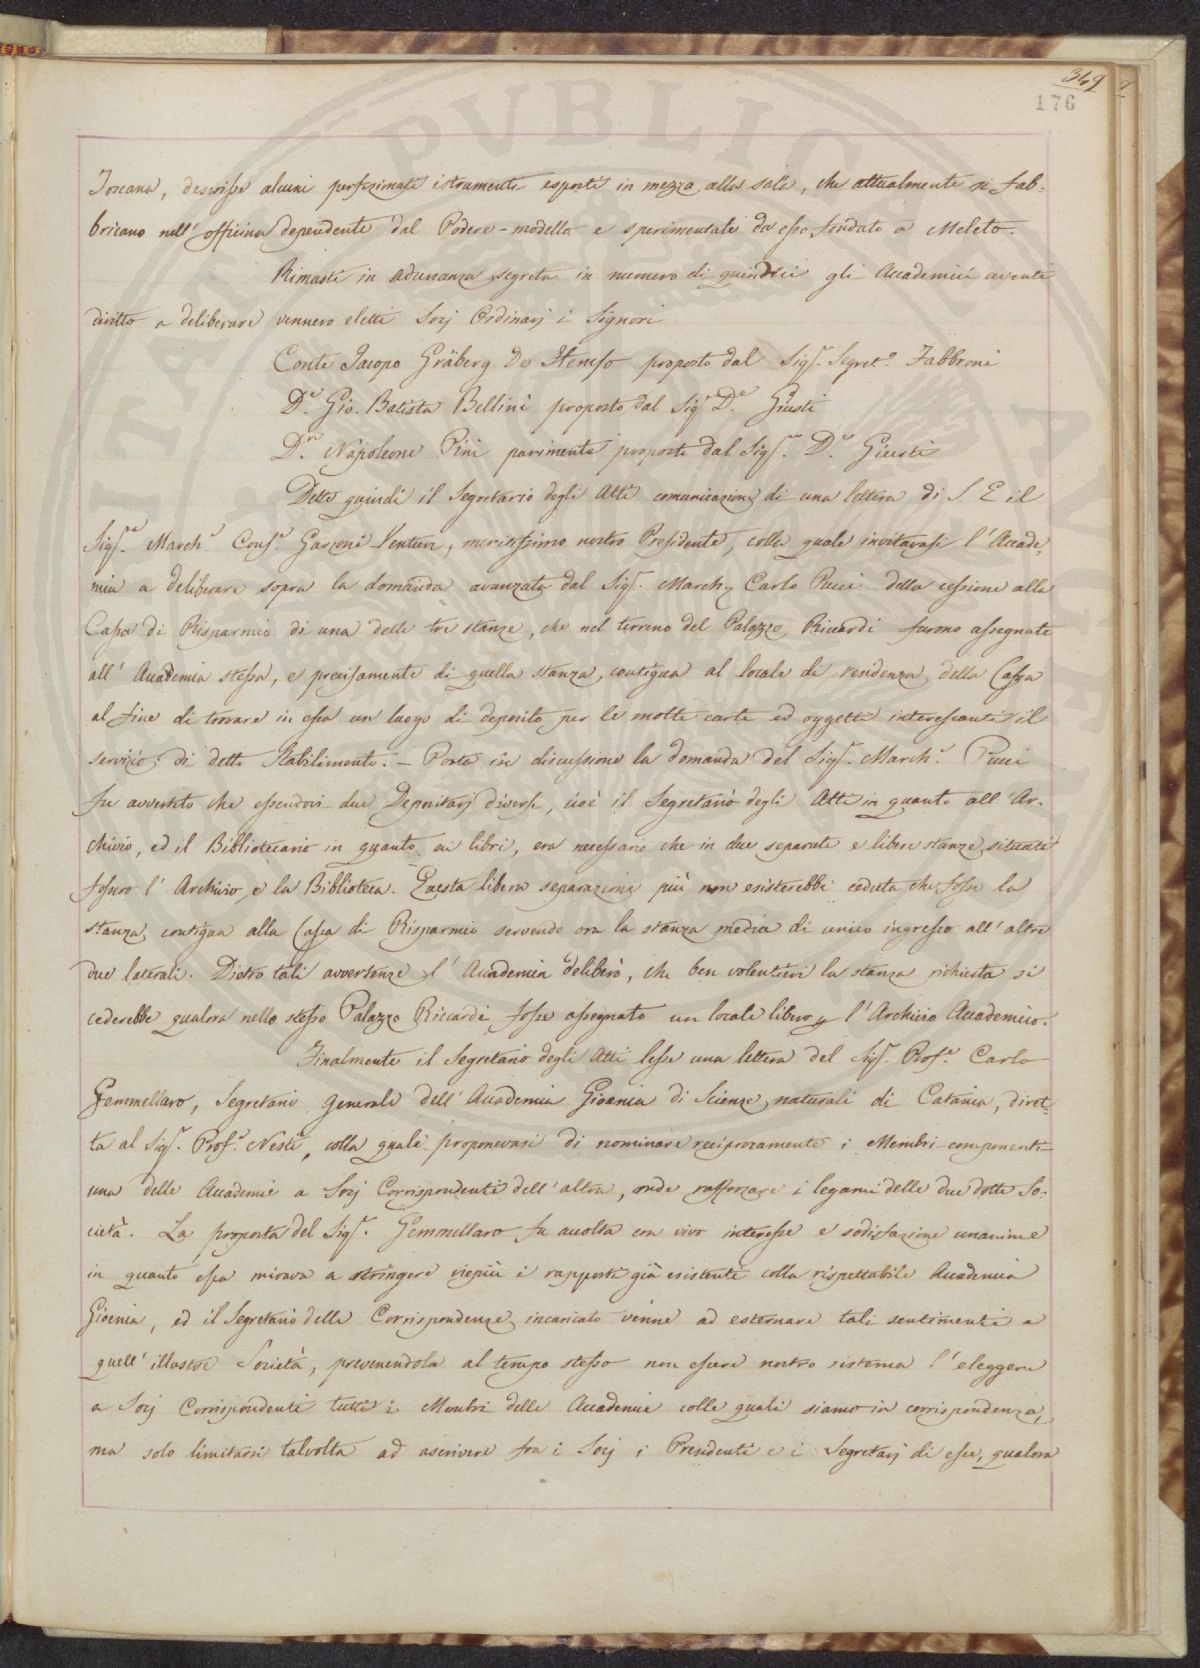 349
176
Toscana, descrisse alcuni perfezionati istrumenti esposti in mezzo alla sala, che attualmente si fab-
bricano nell'officina dipendente dal Podere-modello e sperimentale da esso fondato a Meleto.
Rimasti in adunanza segreta in numero di quindici gli Accademici aventi
diritto a deliberare vennero eletti Socj Ordinarj i Signori
Conte Jacopo Gräberg De Hemso proposto dal Sigr. Segreto. Fabbroni
Dre. Gio. Batista Bellini proposto dal Sigr Dre. Giusti
Dre. Napoleone Pini parimente proposto dal Sigre. Dre. Giusti
Dette quindi il Segretario degli Atti comunicazione di una lettera di S. E il
Sigre. Marche. Conse. Garzoni Venturi, meritissimo nostro Presidente, colla quale invitavasi l'Accade-
mia a deliberare sopra la domanda avanzata dal Sigr. March. Carlo Pucci della cessione alla
Cassa di Risparmio di una delle tre stanze, che nel terreno del Palazzo Riccardi furono assegnate
all'Accademia stessa, e precisamente di quella stanza, contigua al locale di residenza della Cassa
al fine di trovare in essa un luogo di deposito per le molte carte ed oggetti interessanti il
servizio di detto Stabilimento. – Posta in discussione la domanda del Sigr. Marche. Pucci
fu avvertito che essendovi due Depositarj diversi, cioè il Segretario degli Atti in quanto all'Ar-
chivio, ed il Bibliotecario in quanto ai libri, era necessario che in due separate e libere stanze situati
fossero l'Archivio, e la Biblioteca. Questa libera separazione più non esisterebbe ceduta che fosse la
stanza contigua alla Cassa di Risparmio servendo ora la stanza media di unico ingresso all'altre
due laterali. Dietro tali avvertenze l'Accademia deliberò, che ben volentieri la stanza richiesta si
cederebbe qualora nello stesso Palazzo Riccardi fosse assegnato un locale libero p l'Archivio Accademico.
Finalmente il Segretario degli Atti lesse una lettera del Sigr. Profe. Carlo
Gemmellaro, Segretario Generale dell'Accademia Gioenia di Scienze naturali di Catania, diret-
ta al Sigr. Profe. Nesti, colla quale proponevasi di nominare reciprocamente i Membri componenti
una delle Accademie a Socj Corrispondenti dell'altra, onde rafforzare i legami delle due dotte So-
cietà. La proposta del Sigr. Gemmellaro fu accolta con vivo interesse e sodisfazione unanime
in quanto essa mirava a stringere viepiù i rapporti già esistenti colla rispettabile Accademia
Gioenia, ed il Segretario delle Corrispondenze incaricato venne ad esternare tali sentimenti a
quell'illustre Società, prevenendola al tempo stesso non essere nostro sistema l'eleggere
a Socj Corrispondenti tutti i Membri delle Accademie colle quali siamo in corrispondenza,
ma solo limitarsi talvolta ad ascrivere fra i Socj i Presidenti e i Segretarj di esse, qualora